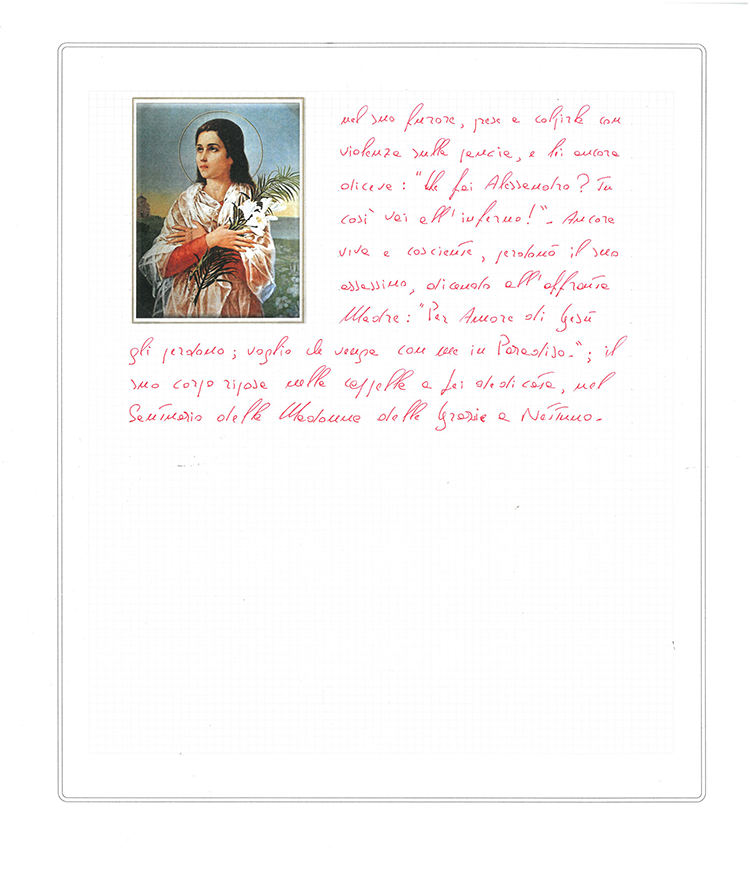 nel suo furore, prese a colpirla con
violenza sulla pancia, e lei ancora
diceva: "Che fai Alessandro? Tu
così vai all'inferno!". Ancora
viva e cosciente, perdonò il suo
assassino, dicendo all'affranta
Madre: "Per Amore di Gesù
gli perdono; voglio che venga con me in Paradiso."; il
suo corpo riposa nella cappella a Lei dedicata, nel
Santuario della Madonna delle Grazie a Nettuno.